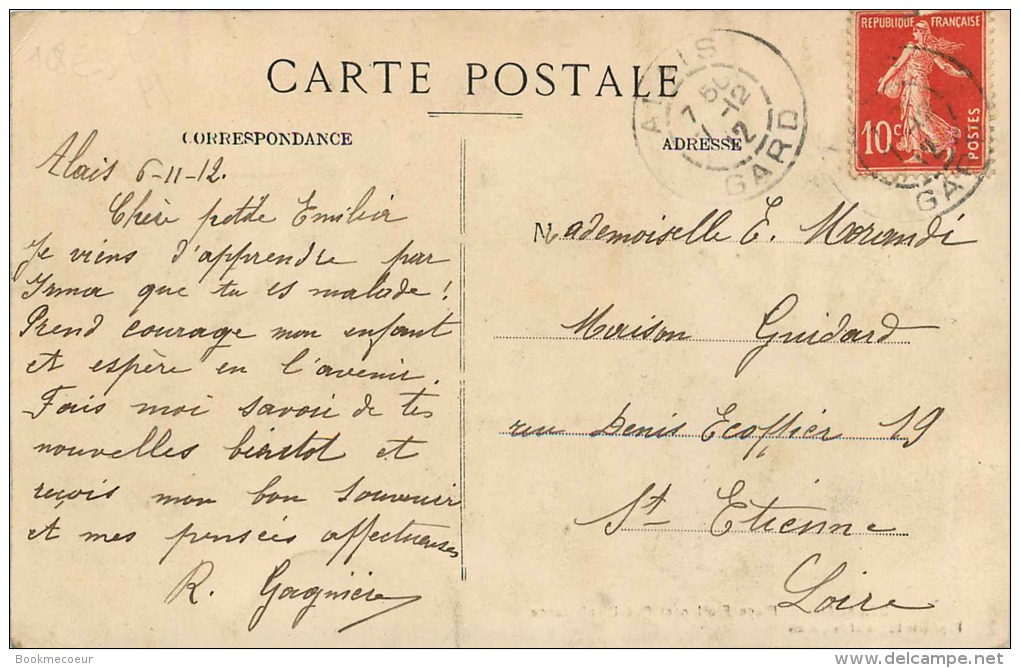 CARTE POSTALE
CORRESPONDANCE
ADRESSE
REPUBLIQUE FRANÇAISE
10c
POSTES
ALAIS
GARD
7 50
12
GARD
Alais 6-11-12.
Chère petite Emilia
Je viens d'apprendre par
Irma que tu es malade!
Prend courage mon enfant
et espère en l'avenir.
Fais moi savoir de tes
nouvelles bientot et
reçois mon bon souvenir
et mes pensées affectueuses
R. Gagnière
Mademoiselle E. Morandi
Maison Guidard
rue Denis Ecoffier 19
St Etienne
Loire
Bookmecoeur
delcampe.net